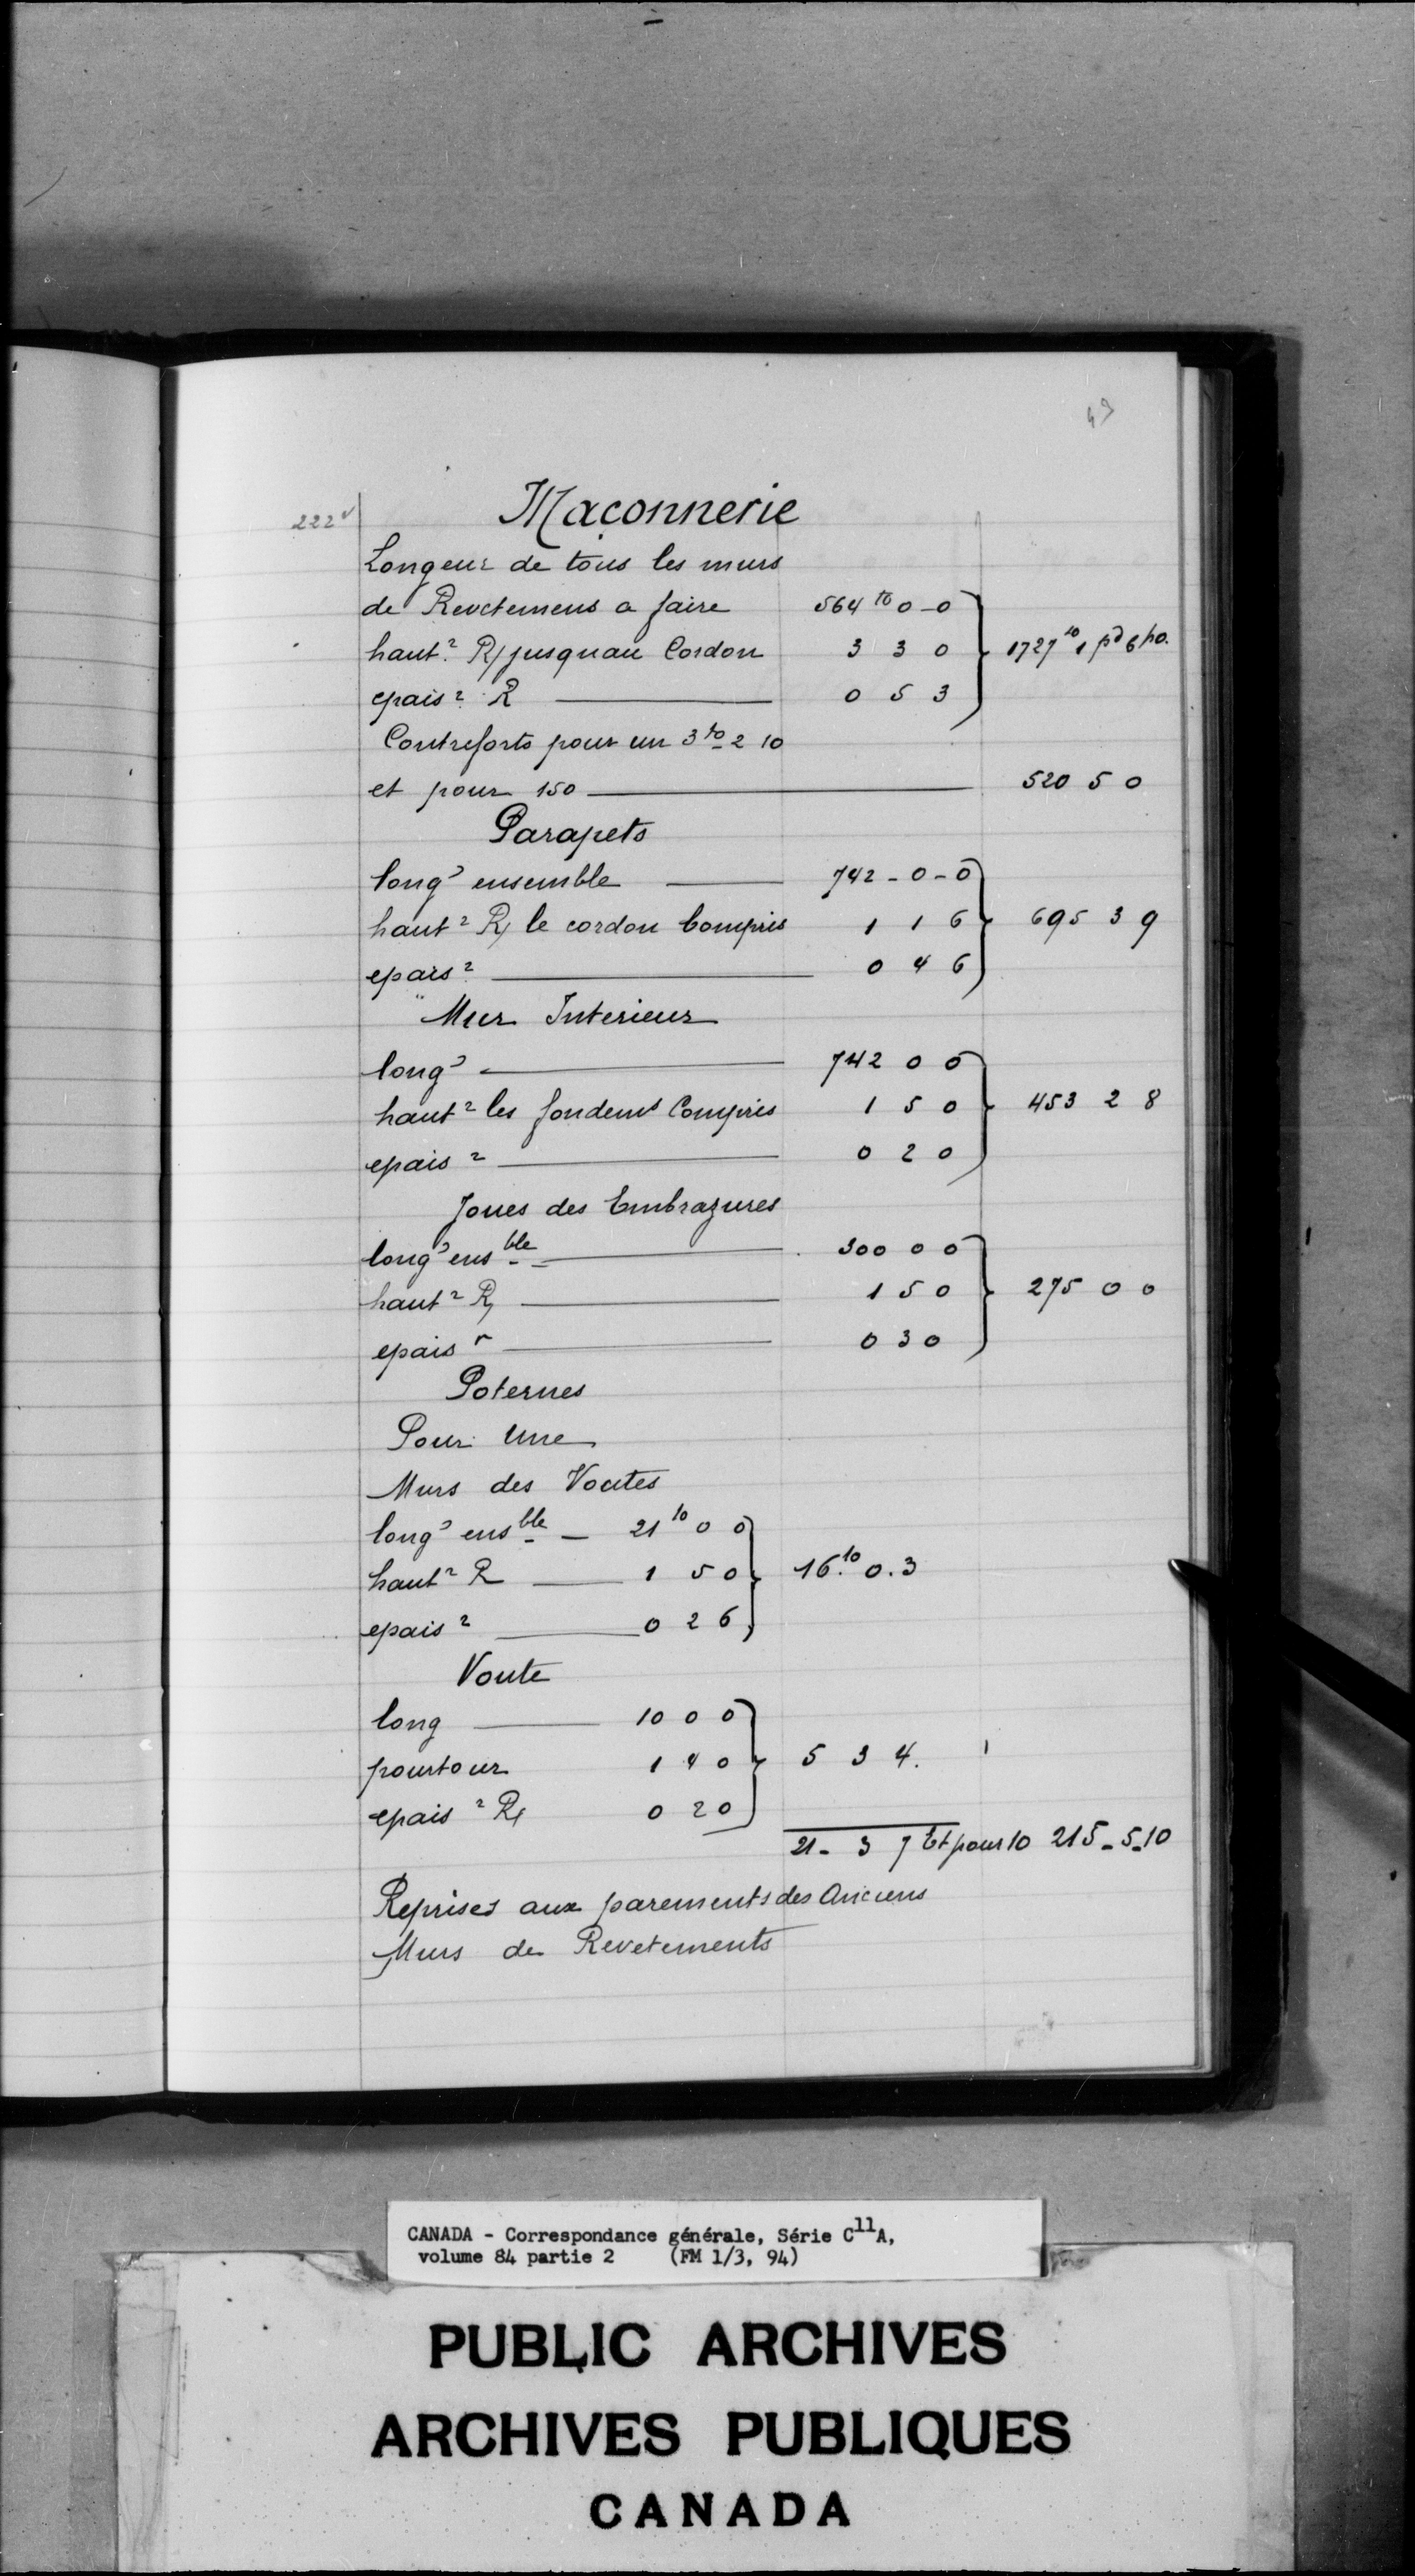 49
222v
Maçonnerie
Longeur de tous les murs
de Revetemens a faire 564 to 0-0
haut.r R/ jusquau Cordon 3 3 0 1727 to 1 pd 6 po.
epais r R 0 5 3
Contreforts pour un 3 to 2 10
et pour 150 520 5 0
Parapets
long r ensemble 742-0-0
haut r R/ le cordon Compris 1 1 6 695 3 9
epais r 0 4 6
Mur Interieur
long r 742 0 0
haut r les fondemt Compris 1 5 0 453 2 8
epais r 0 2 0
Joues des Embrazures
long r ens ble 300 0 0
haut r R/ 1 5 0 275 0 0
epais r 0 3 0
Poternes
Pour Une
Murs des Voutes
long r ens ble 21 to 0 0
haut r R 1 5 0 16.to 0.3
epais r 0 2 6
Voute
long 10 0 0
pourtour 1 4 0 5 3 4.
epais r R/ 0 2 0
21- 3 7 Et pour 10 215-5-10
Reprises aux parements des Anciens
Murs de Revetements
CANADA - Correspondance générale, Série C11A,
volume 84 partie 2 (FM 1/3, 94)
PUBLIC ARCHIVES
ARCHIVES PUBLIQUES
CANADA